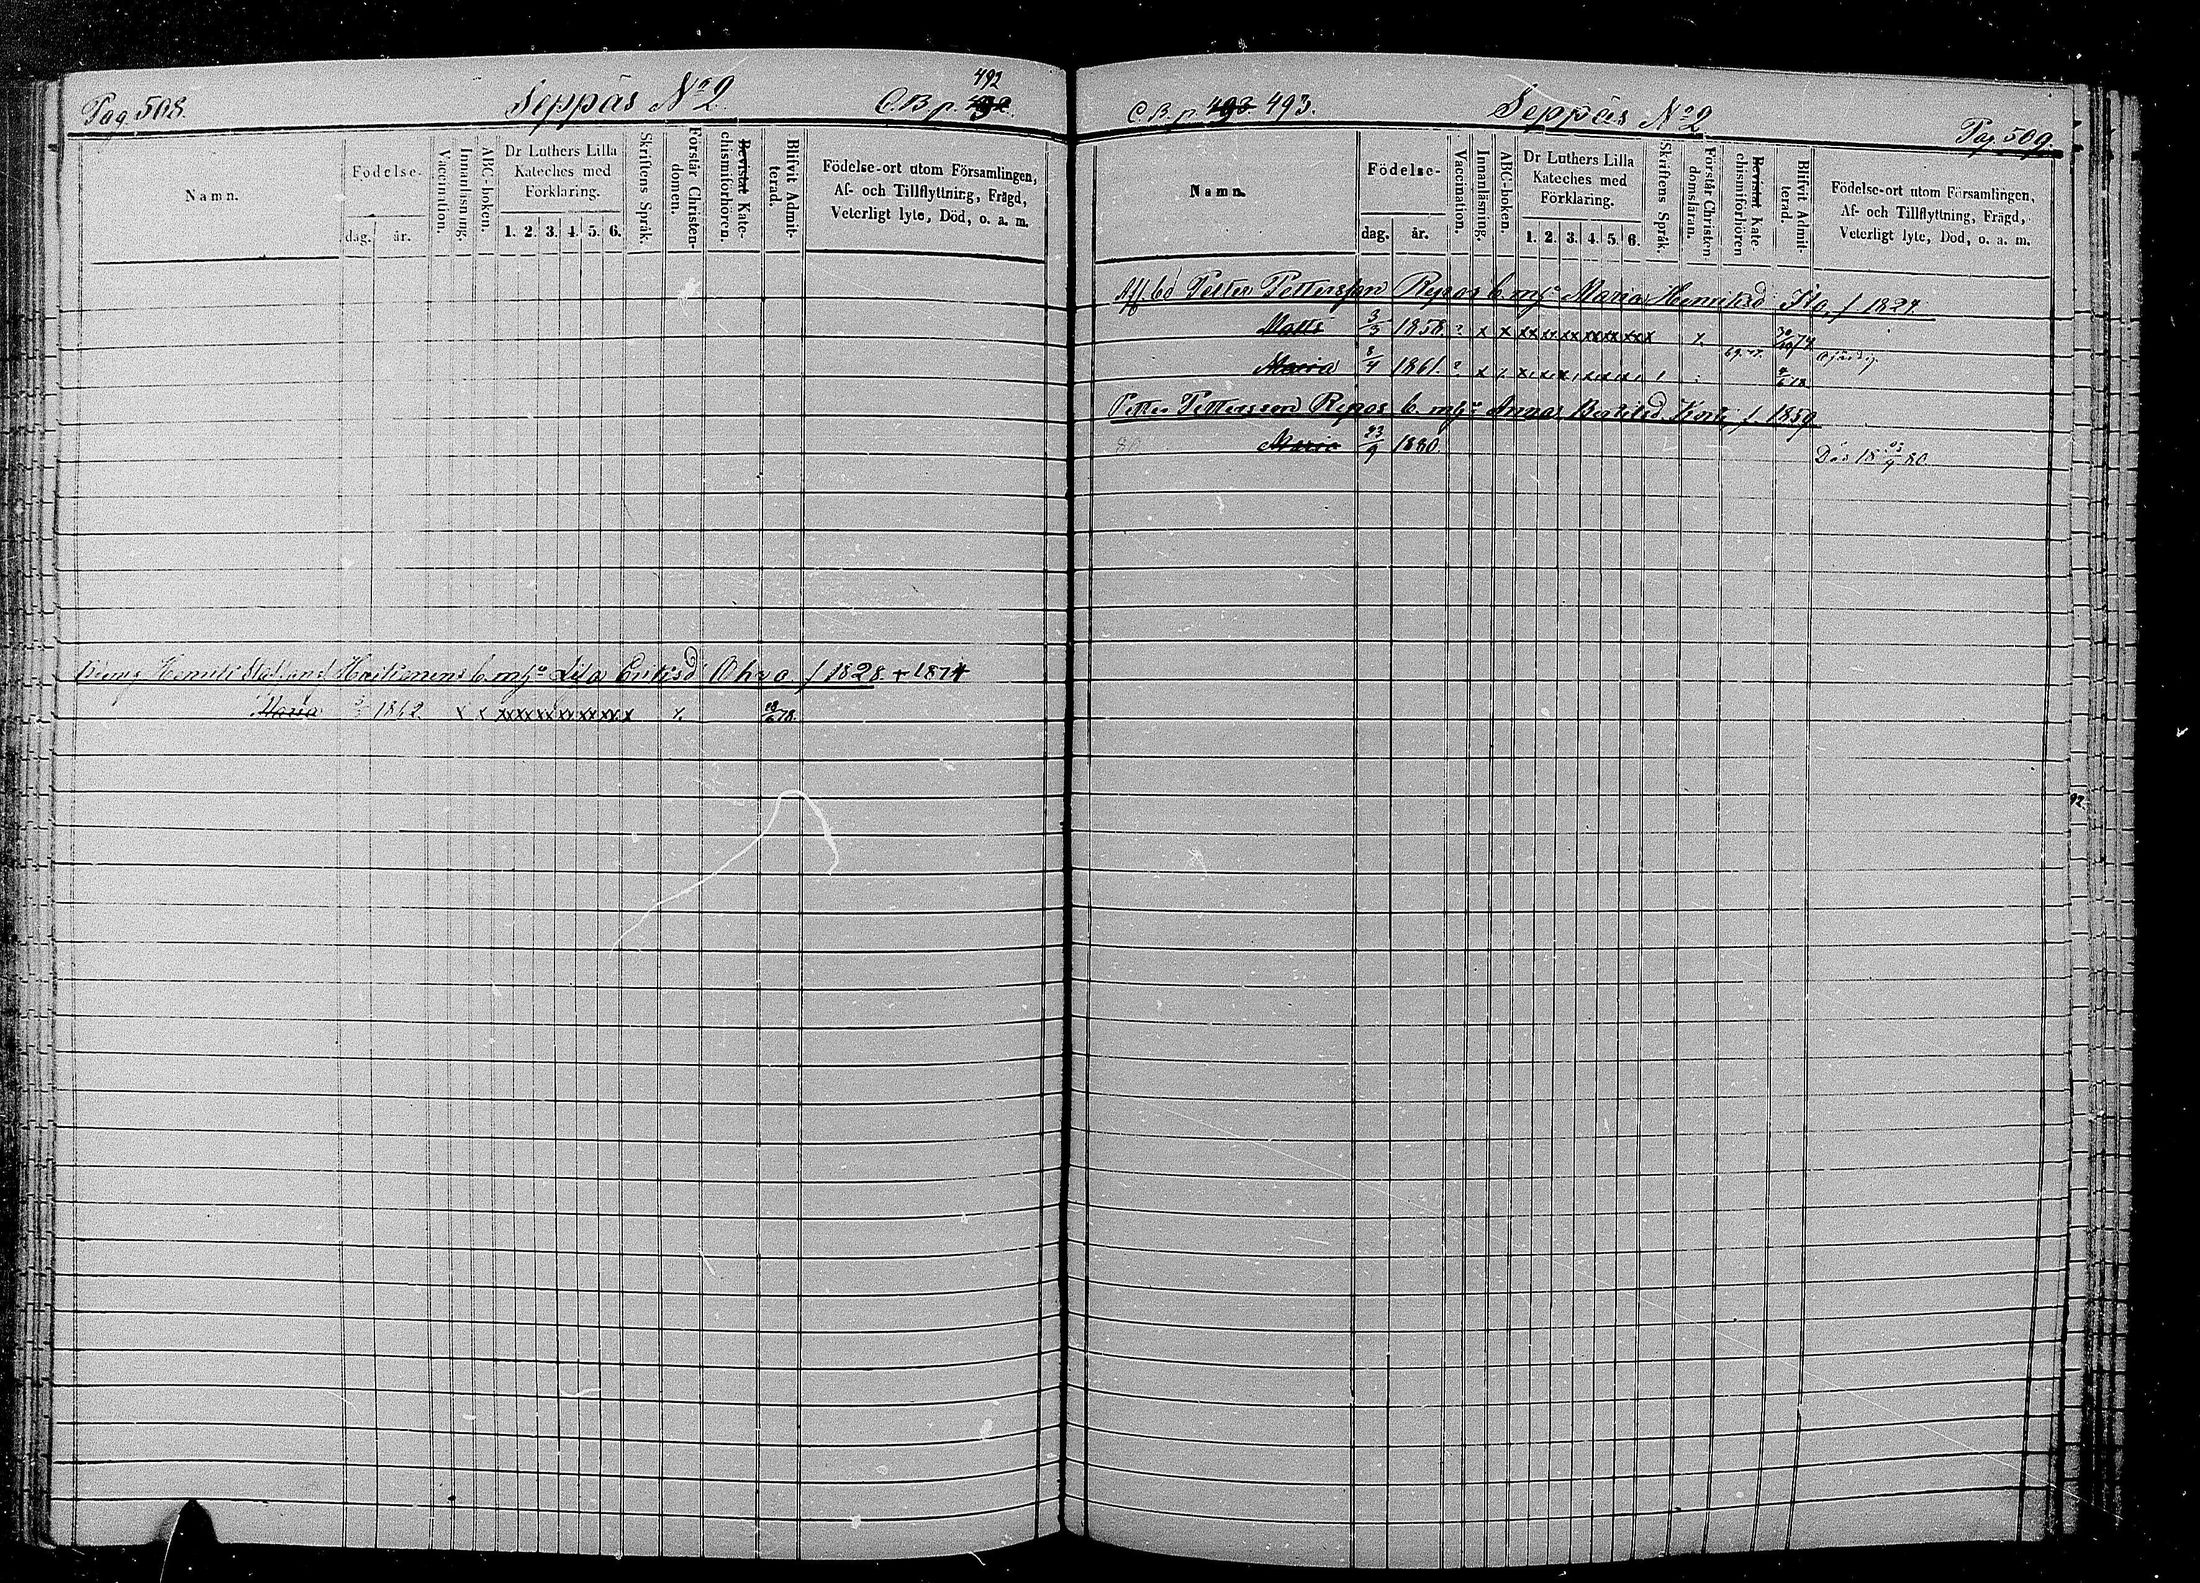 Pag 508.
Seppäs No 2
492
C.B. p. 492.
Namn.
Födelse-
dag. år.
Vaccination.
Innanläsning.
ABC-boken.
Dr Luthers Lilla
Kateches med
Förklaring.
1. 2. 3. 4. 5. 6.
Skriftens Språk.
Förstår Christen-
domen.
Bevistat Kate-
chismiförhören.
Blifvit Admit-
terad.
Födelse-ort utom Församlingen,
Af- och Tillflyttning, Frägd,
Veterligt lyte, Död, o. a. m.
Henrik h. mh. Lisa Eriksd Ohra f 1828 + 1874
Maria 1862 x x xx xx xx xx xx xx x x 78.
C.B. p. 493. 493.
Seppäs No 2
Pag. 509.
Namn.
Födelse-
dag. år.
Vaccination.
Innanläsning.
ABC-boken.
Dr Luthers Lilla
Kateches med
Förklaring.
1. 2. 3. 4. 5. 6.
Skriftens Språk.
Förstår Christen
domsläran.
Bevistat Kate-
chismiförhören
Blifvit Admit-
terad.
Födelse-ort utom Församlingen,
Af- och Tillflyttning, Frägd,
Veterligt lyte, Död, o. a. m.
Petter Pettersson Repos h. mh. Maria Henriksd f 1827
Matts 3/3 1858 ? x x xx xx xx xx xx xx x x 74
Maria 8/4 1861 ? x
Petter Pettersson Repos h. mh. Anna f. 1859
80 Maria 23/9 1880
Död 18 80
92